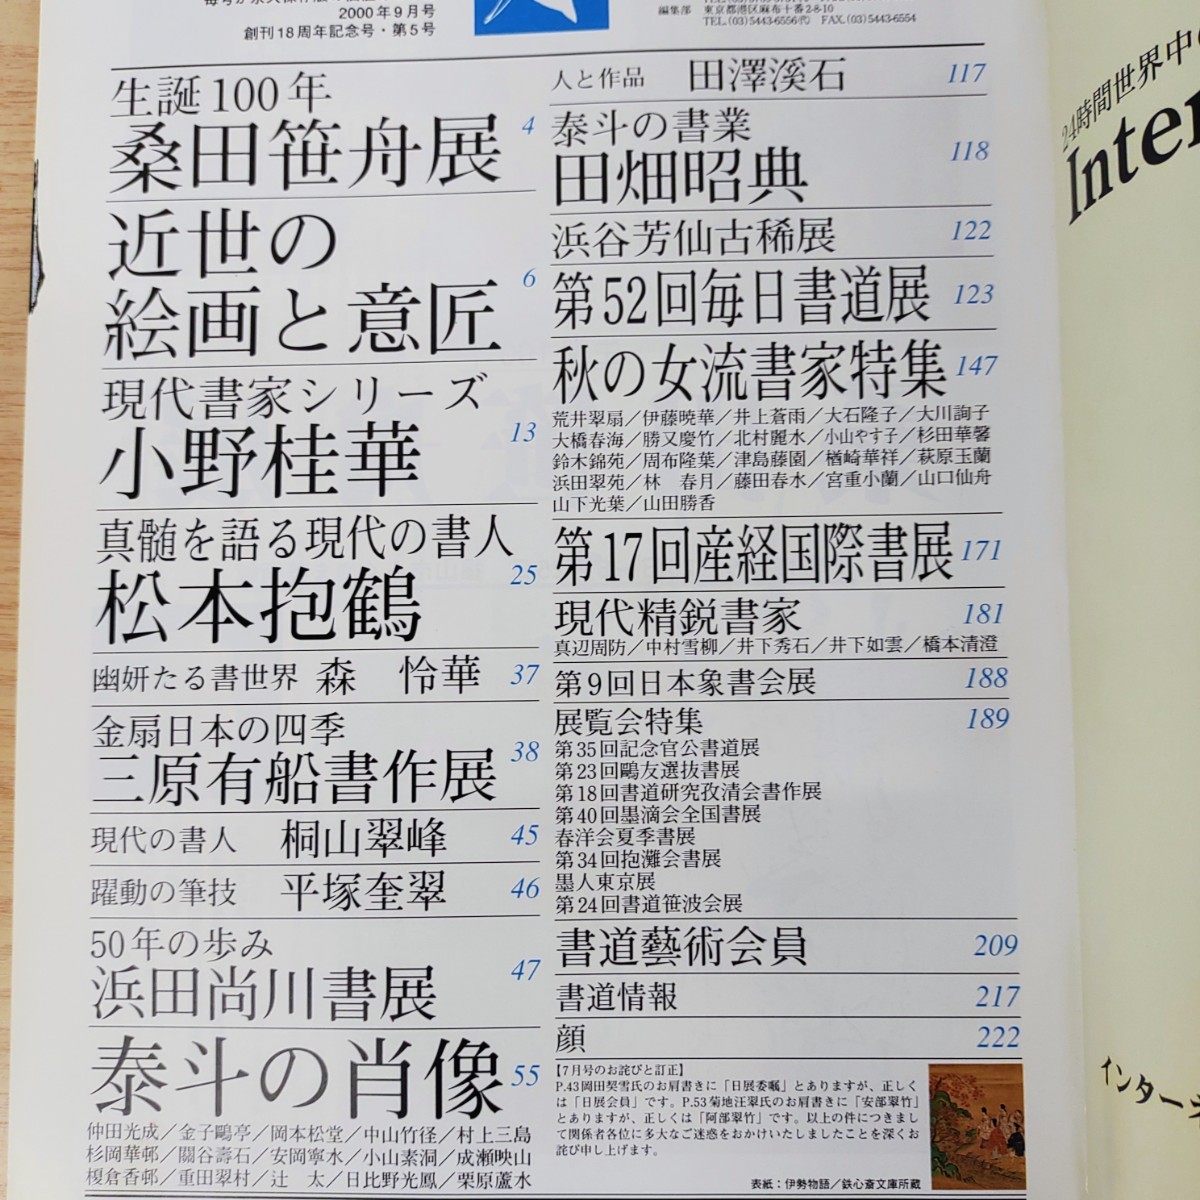 2000年9月号
創刊18周年記念号・第5号
編集部 東京都港区麻布十番2-8-10
TEL.(03)5443-6556代 FAX.(03)5443-6554
生誕100年
桑田笹舟展 4
近世の
絵画と意匠 6
現代書家シリーズ
小野桂華 13
真髄を語る現代の書人
松本抱鶴 25
幽妍たる書世界 森 怜華 37
金扇日本の四季
三原有船書作展 38
現代の書人 桐山翠峰 45
躍動の筆技 平塚奎翠 46
50年の歩み
浜田尚川書展 47
泰斗の肖像 55
仲田光成／金子鷗亭／岡本松堂／中山竹径／村上三島
杉岡華邨／關谷壽石／安岡寧水／小山素洞／成瀬映山
榎倉香邨／重田翠村／辻 太／日比野光鳳／栗原蘆水
人と作品 田澤溪石 117
泰斗の書業
田畑昭典 118
浜谷芳仙古稀展 122
第52回毎日書道展 123
秋の女流書家特集 147
荒井翠扇／伊藤暁華／井上蒼雨／大石隆子／大川詢子
大橋春海／勝又慶竹／北村麗水／小山やす子／杉田華馨
鈴木錦苑／周布隆葉／津島藤園／楢崎華祥／萩原玉蘭
浜田翠苑／林 春月／藤田春水／宮重小蘭／山口仙舟
山下光葉／山田勝香
第17回産経国際書展 171
現代精鋭書家 181
真辺周防／中村雪柳／井下秀石／井下如雲／橋本清澄
第9回日本象書会展 188
展覧会特集 189
第35回記念官公書道展
第23回鷗友選抜書展
第18回書道研究孜清会書作展
第40回墨滴会全国書展
春洋会夏季書展
第34回抱灘会書展
墨人東京展
第24回書道笹波会展
書道藝術会員 209
書道情報 217
顔 222
【7月号のお詫びと訂正】
P.43岡田契雪氏のお肩書きに「日展委嘱」とありますが、正しく
は「日展会員」です。P.53菊地汪翠氏のお肩書きに「安部翠竹」
とありますが、正しくは「阿部翠竹」です。以上の件につきまし
て関係者各位に多大なご迷惑をおかけいたしましたことを深くお
詫び申し上げます。
表紙：伊勢物語／鉄心斎文庫所蔵
24時間世界中
Inter
インターネ